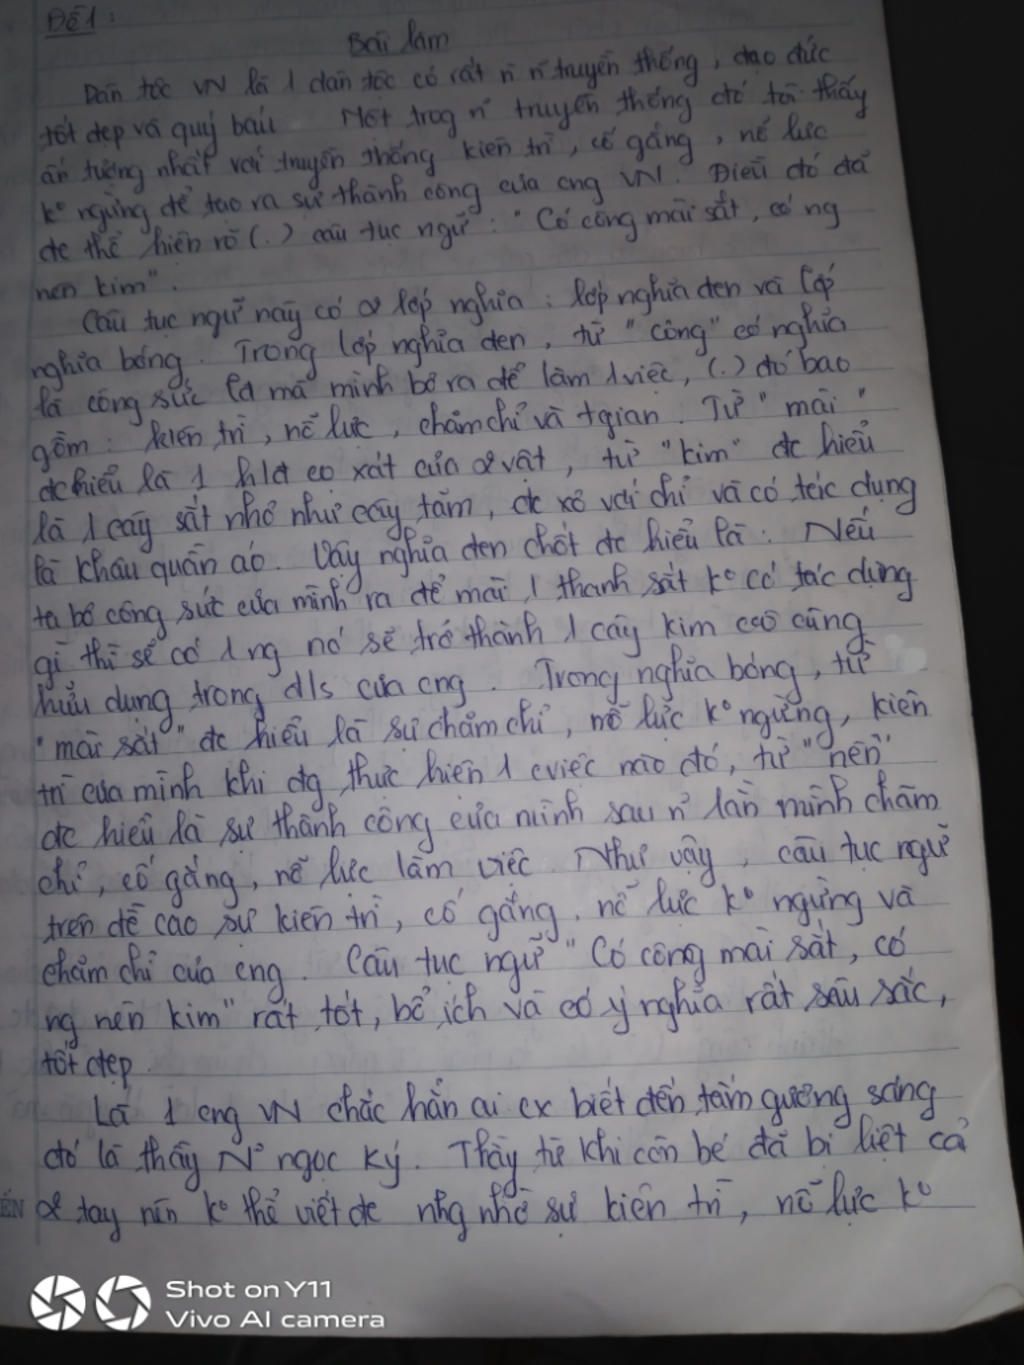 Đề 1:
Bài làm
Dân tộc VN là 1 dân tộc có rất n n~ truyền thống, đạo đức
tốt đẹp và quý báu Một trog n~ truyền thống đó tôi thấy
ấn tượng nhất với truyền thống kiên trì, cố gắng, nỗ lực
ko ngừng để tạo ra sự thành công của cng VN. Điều đó đã
đc thể hiện rõ (.) câu tục ngữ: "Có công mài sắt, có ng
nên kim".
Câu tục ngữ này có 2 lớp nghĩa: lớp nghĩa đen và lớp
nghĩa bóng. Trong lớp nghĩa đen, từ "công" có nghĩa
là công sức là mà mình bỏ ra để làm 1 việc, (.) đó bao
gồm: kiên trì, nỗ lực, chăm chỉ và tgian. Từ "mài"
đc hiểu là 1 hđ cọ xát của 2 vật, từ "kim" đc hiểu
là 1 cây sắt nhỏ như cây tăm, đc xỏ với chỉ và có tác dụng
là khâu quần áo. Vậy nghĩa đen chốt đc hiểu là: Nếu
ta bỏ công sức của mình ra để mài 1 thanh sắt ko có tác dụng
gì thì sẽ có 1 ng nó sẽ trở thành 1 cây kim cao cũng
hữu dụng trong đ/s của cng. Trong nghĩa bóng, từ
"mài sắt" đc hiểu là sự chăm chỉ, nỗ lực ko ngừng, kiên
trì của mình khi đg thực hiện 1 cviệc nào đó, từ "nên"
đc hiểu là sự thành công của mình sau n~ lần mình chăm
chỉ, cố gắng, nỗ lực làm việc. Như vậy, câu tục ngữ
trên đề cao sự kiên trì, cố gắng, nỗ lực ko ngừng và
chăm chỉ của cng. Câu tục ngữ "Có công mài sắt, có
ng nên kim" rất tốt, bổ ích và có ý nghĩa rất sâu sắc,
tốt đẹp.
Là 1 cng VN chắc hẳn ai cx biết đến tấm gương sáng
đó là thầy N~ ngọc Ký. Thầy từ khi còn bé đã bị liệt cả
2 tay nên ko thể viết đc nhg nhờ sự kiên trì, nỗ lực ko
Shot on Y11
Vivo AI camera